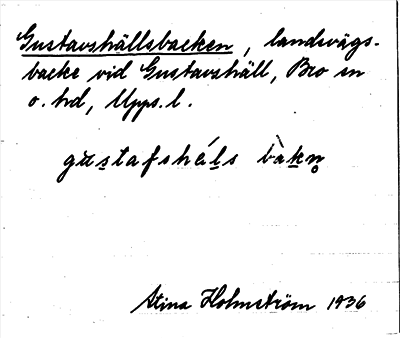 Gustavshällsbacken, landsvägs-
backe vid Gustavshäll, Bro sn
o. hd, Upps. l.
gustafshäls bakn
Stina Holmström 1936